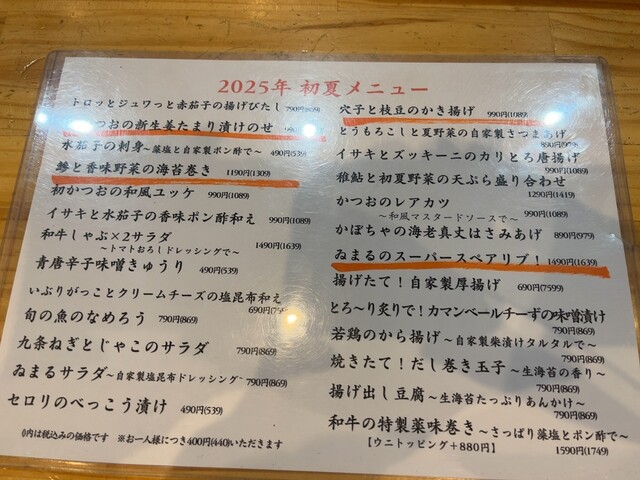 2025年 初夏メニュー
トロッとジュワっと赤茄子の揚げびたし 790円(869)
つおの新生姜たまり漬けのせ
水茄子の刺身~藻塩と自家製ポン酢で~ 490円(539)
鰺と香味野菜の海苔巻き 1190円(1309)
初かつおの和風ユッケ 990円(1089)
イサキと水茄子の香味ポン酢和え 990円(1089)
和牛しゃぶ×2サラダ 1490円(1639)
~トマトおろしドレッシングで~
青唐辛子味噌きゅうり 490円(539)
いぶりがっことクリームチーズの塩昆布和え
690円(759)
旬の魚のなめろう 790円(869)
九条ねぎとじゃこのサラダ 790円(869)
ゐまるサラダ~自家製塩昆布ドレッシング~ 790円(869)
セロリのべっこう漬け 490円(539)
()内は税込みの価格です ※お一人様につき400円(440)いただきます
穴子と枝豆のかき揚げ 990円(1089)
とうもろこしと夏野菜の自家製さつまあげ
890円(979)
イサキとズッキーニのカリとろ唐揚げ
990円(1089)
稚鮎と初夏野菜の天ぷら盛り合わせ
1290円(1419)
かつおのレアカツ
~和風マスタードソースで~ 990円(1089)
かぼちゃの海老真丈はさみあげ 890円(979)
ゐまるのスーパースペアリブ! 1490円(1639)
揚げたて!自家製厚揚げ 690円(7599)
とろ~り炙りで!カマンベールチーずの味噌漬け
790円(869)
若鶏のから揚げ~自家製柴漬けタルタルで~
790円(869)
焼きたて!だし巻き玉子~生海苔の香り~
790円(869)
揚げ出し豆腐~生海苔たっぷりあんかけ~
790円(869)
和牛の特製薬味巻き~さっぱり藻塩とポン酢で~
【ウニトッピング+880円】 1590円(1749)